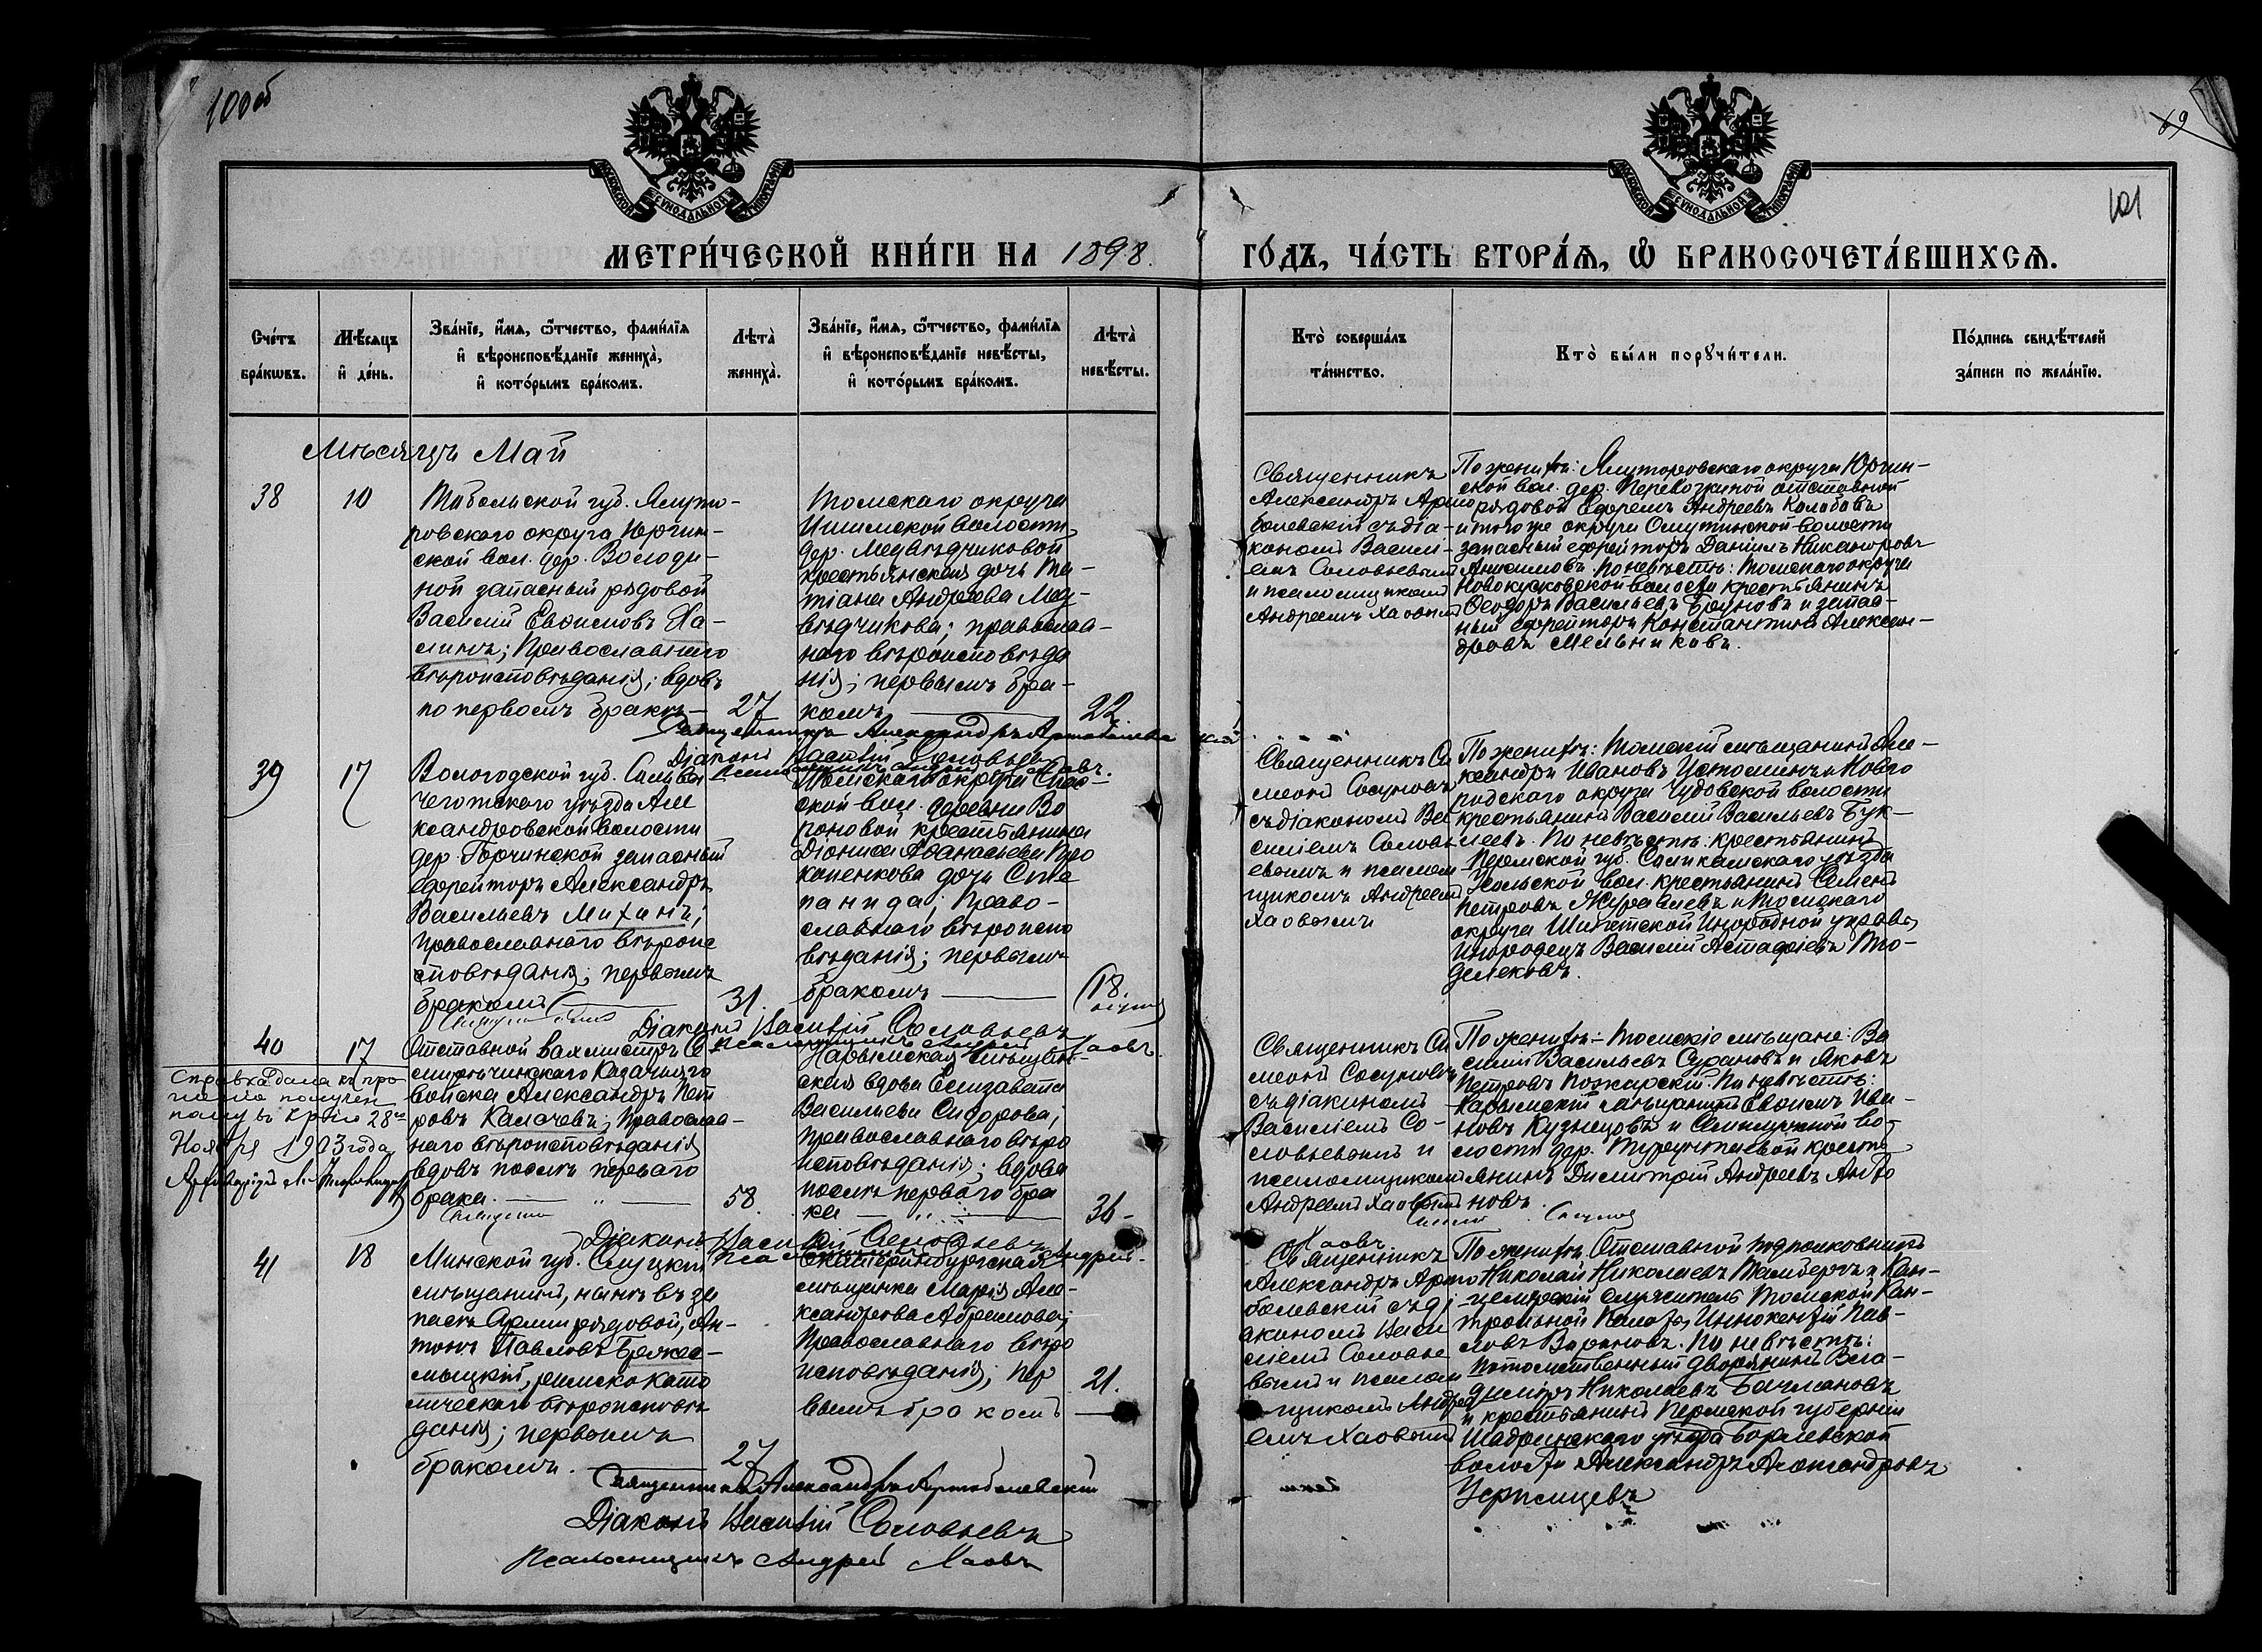 100 об
69
101
МЕТРИ́ЧЕСКОЙ КНИ́ГИ НА 1898
ГО́ДЪ, ЧА́СТЬ ВТОРА́Я, Ѡ БРАКОСОЧЕТА́ВШИХСЯ.
Сче́тъ бра́кѡвъ.
Мѣ́сяцъ и҆ де́нь.
Зва́нїе, и҆́мя, ѻ҆́тчество, фами́лїя
и҆ вѣроисповѣ́данїе жениха̀,
и҆ кото́рымъ бра́комъ.
Лѣта̀ жениха̀.
Зва́нїе, и҆́мя, ѻ҆́тчество, фами́лїя
и҆ вѣроисповѣ́данїе невѣ́сты,
и҆ кото́рымъ бра́комъ.
Лѣта̀ невѣ́сты.
Кто̀ соверша́лъ
та́инство.
Кто̀ бы́ли порꙋчи́тели.
По́дпись свидѣ́телей
за́писи по жела́нїю.
Мѣсяцъ Май
38
10
Тобольской губ. Ялуто-
ровскаго округа Юргин-
ской вол. дер. Володи-
ной запасный рядовой
Василий Евѳимовъ Ха-
линъ; Православнаго
вѣроисповѣданія; вдовъ
по первомъ бракѣ
27
Томскаго округа
Ишимской волости
дер. Медвѣдчиковой
крестьянская дочь Та-
тіана Андреева Мед-
вѣдчикова; православ-
наго вѣроисповѣда
нія; первымъ бра-
комъ
22.
Священникъ
Александръ Арто
болевскій съ діа-
кономъ Васили-
емъ Соловьевымъ
и псаломщикомъ
Андреемъ Хаовымъ
По женихѣ: Ялуторовскаго округа Юргин-
ской вол. дер. Перевозкиной отставной
рядовой Ефремъ Андреевъ Колобовъ
и того же округа Омутинской волости
запасный ефрейторъ Даніилъ Никаноровъ
Анисимовъ. По невѣстѣ: Томскаго округа
Новокусковской волости крестьянинъ
Ѳеодоръ Васильевъ Бруновъ и запас-
ный ефрейторъ Константинъ Алексан-
дровъ Мельниковъ.
Священникъ Александръ Артоболевскій
Діаконъ Василій Соловьевъ
39
17
Вологодской губ. Сольвы
чеготскаго уѣзда Але
ксандровской волости
дер. Горчинской запасный
ефрейторъ Александръ
Васильевъ Михинъ;
православнаго вѣроис
повѣданія; первымъ
бракомъ
31.
Томскаго округа Спас-
ской вол. деревни Во
роновой крестьянина
Діонисія Аѳанасьева Про
копенкова дочь Сте
панида; Право-
славнаго вѣроиспо
вѣданія; первымъ
бракомъ
18.
Священникъ Си
меонъ Сосуновъ
съ діакономъ Ва
силіемъ Соловь
евымъ и псалом
щикомъ Андреемъ
Хаовымъ
По женихѣ: Томскій мѣщанинъ Але-
ксандръ Ивановъ Устюминъ и Новго
родскаго округа Чудовской волости
крестьянинъ Василий Васильевъ Бук-
леевъ. По невѣстѣ: крестьянинъ
Пермской губ. Соликамскаго уѣзда
Усольской вол. крестьянинъ Семенъ
Петровъ Журавлевъ и Томскаго
округа Шигетской Инородной управы
Инородецъ Василий Астафіевъ То-
делековъ.
Діаконъ Василій Соловьевъ
40
17
Отставной вахмистръ Се
мирѣчинскаго Казачьяго
войска Александръ Пет
ровъ Калачевъ; Православ-
наго вѣроисповѣданія
вдовъ послѣ перваго
брака.
58.
Нарымская мѣщан-
ская вдова Елизавета
Васильева Сидорова,
православнаго вѣро
исповѣданія; вдова
послѣ перваго бра
ка
36
Справка дана къ про
1903 года
Священникъ Си
меонъ Сосуновъ
съ діакономъ
Василіемъ Со-
ловьевымъ и
псаломщикомъ
Андреемъ Хаовымъ
По женихѣ - Томскіе мѣщане: Ва
силий Васильевъ Сурановъ и Яковъ
Петровъ Пожарскій. По невѣстѣ:
Нарымскій мѣщанинъ Евѳимъ Ива-
новъ Кузнецовъ и Семилужной во-
лости дер. кресть
янинъ Димитрій Андреевъ Андро
новъ.
Діаконъ Василій Соловьевъ
41
18
Минской губ. Слуцкій
мѣщанинъ, нынѣ въ за
пасѣ Арміи рядовой, Ан-
тонъ Павловъ Брежес-
мыцкій, римско като
лическаго вѣроисповѣ
данія; первымъ
бракомъ.
27
Екатеринбургская
мѣщанка Марія Але-
ксандрова Абрамова;
Православнаго вѣро
исповѣданія; пер
вымъ бракомъ
21.
Священникъ
Александръ Арто
болевскій съ ді
акономъ Васи
ліемъ Соловье
вымъ и псалом
щикомъ Андре
емъ Хаовымъ
По женихѣ Отставной подполковникъ
Николай Николаевъ Тамбергъ и Кан-
целярскій служитель Томской Кон-
трольной Палаты Иннокентій Пав-
ловъ Вариновъ. По невѣстѣ:
потомственный дворянинъ Вла-
димиръ Николаевъ Бачмановъ
и крестьянинъ Пермской губерніи
Шадринскаго уѣзда Борлевской
волости Александръ Александровъ
Черписцевъ
Священникъ Александръ Артоболевскій
Діаконъ Василій Соловьевъ
Псаломщикъ Андрей Хаовъ